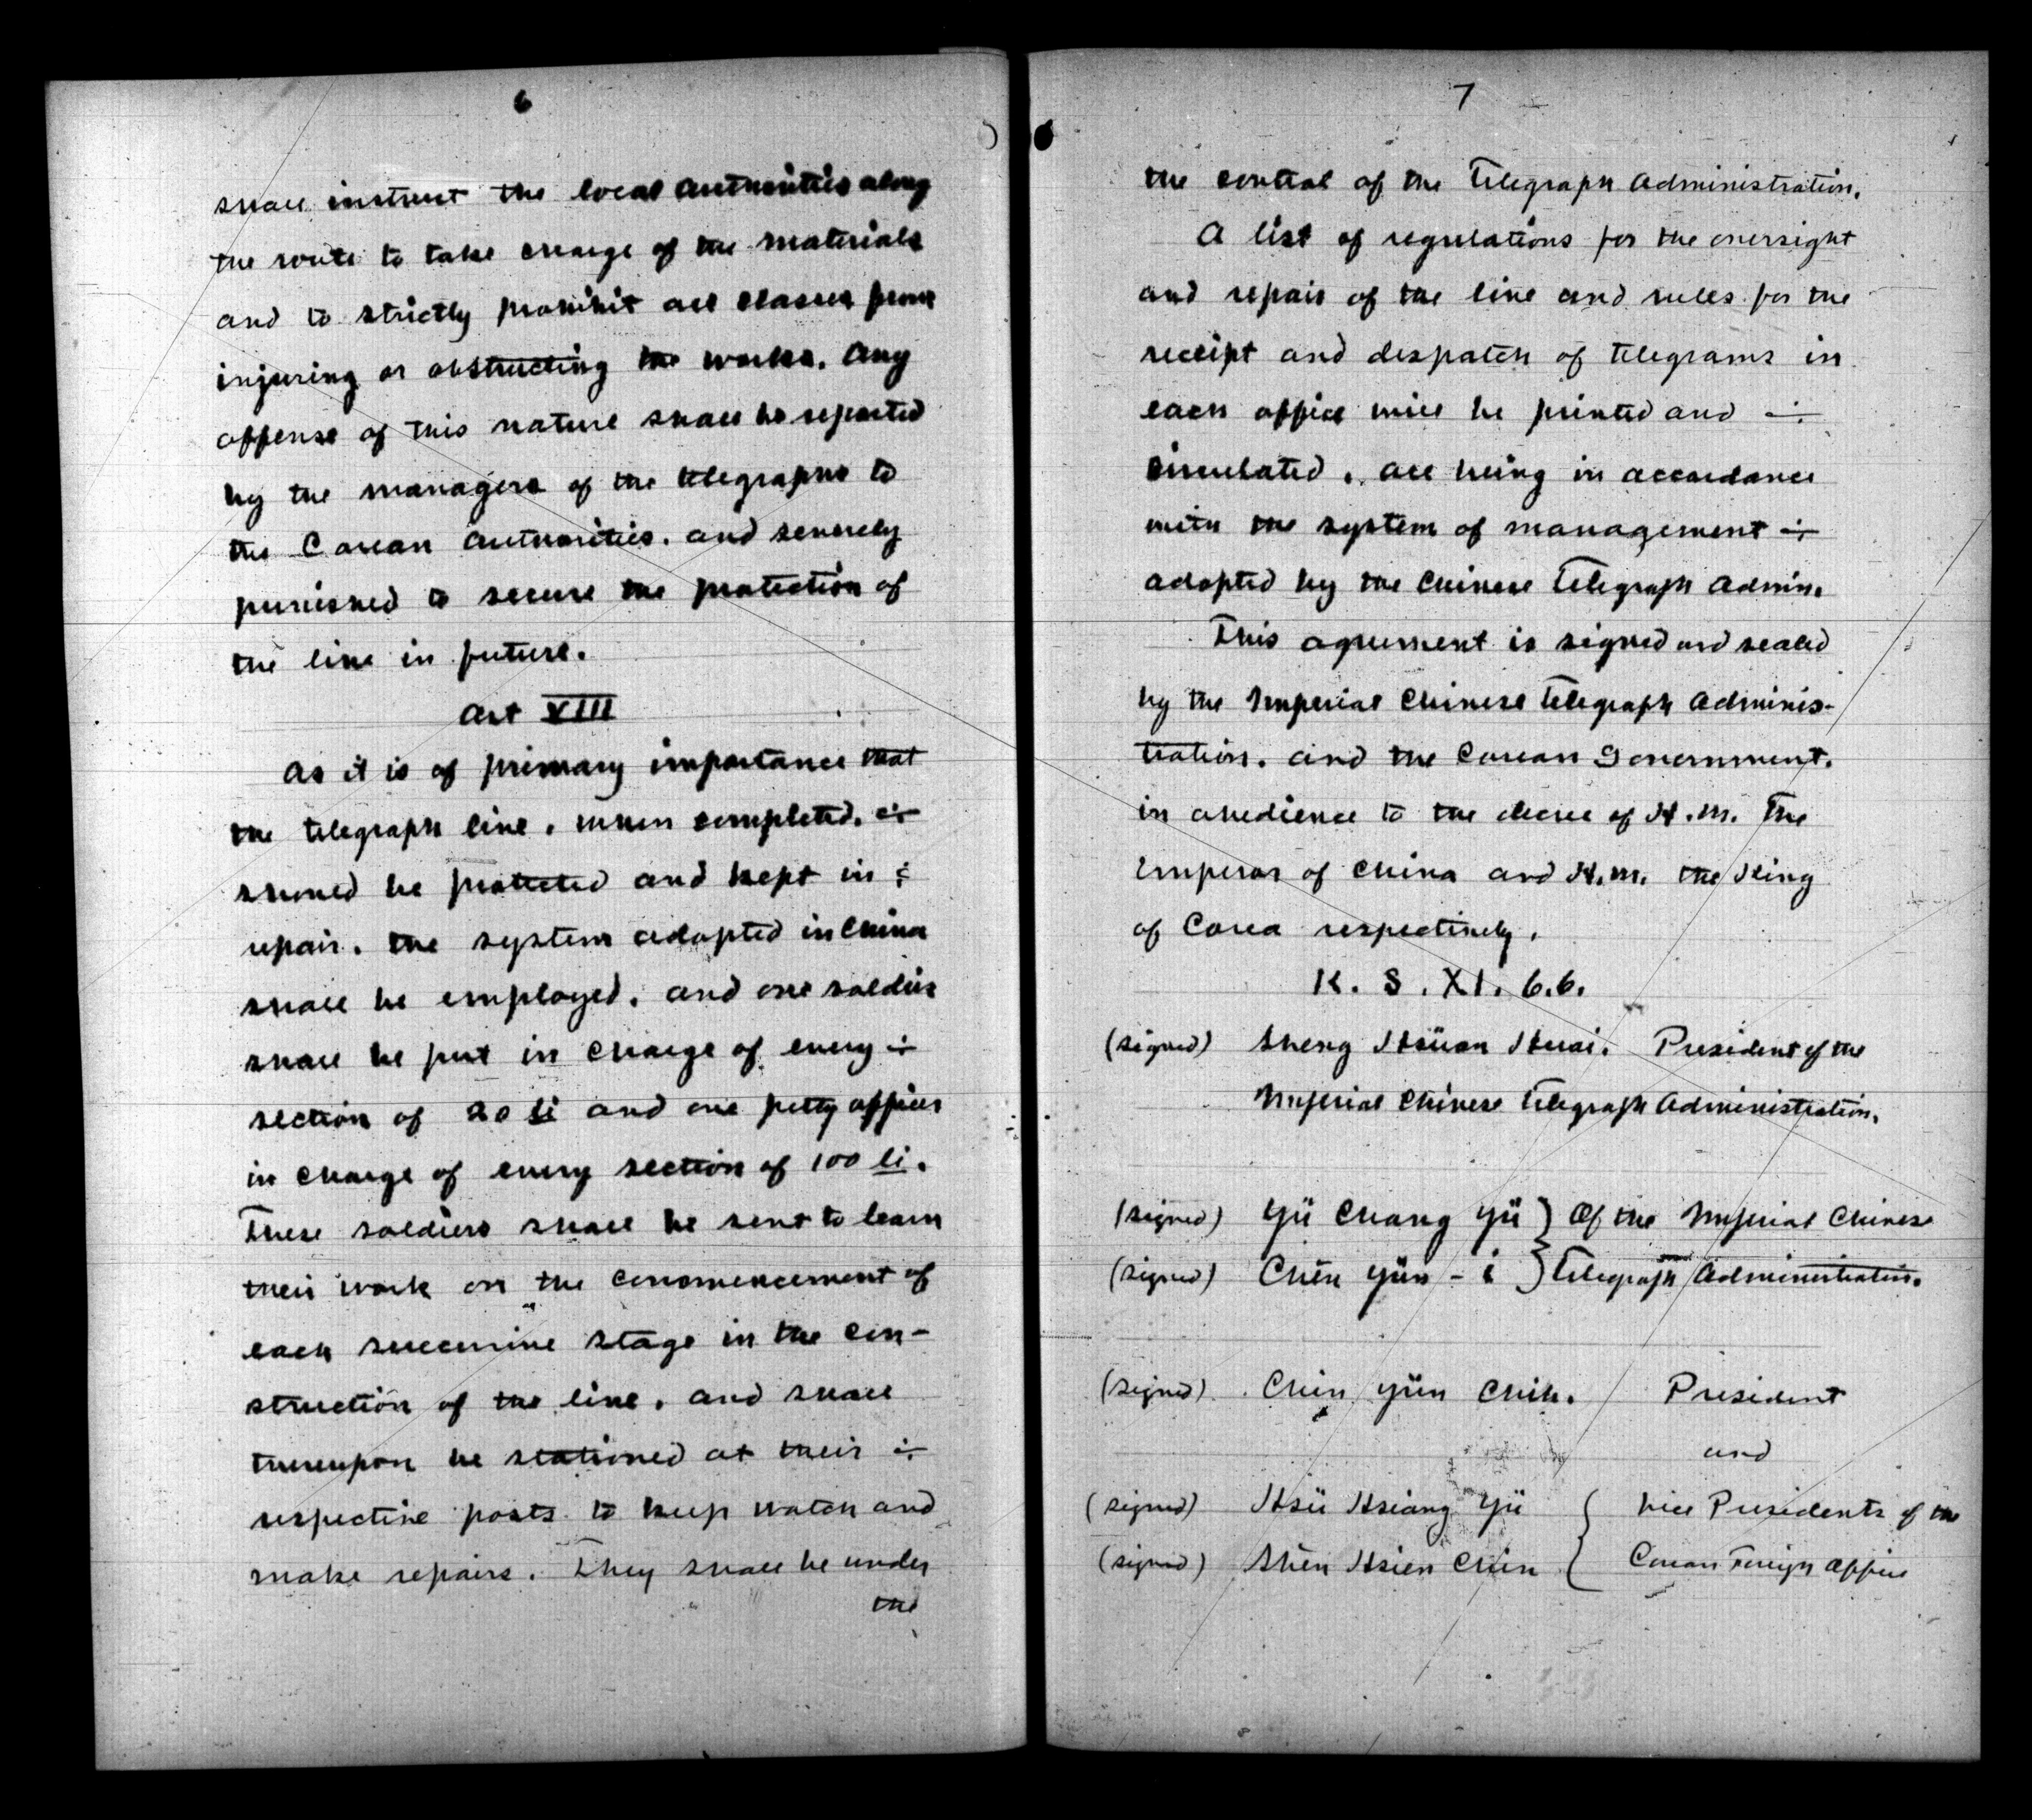 6
shall instruct the local authorities along
the route to take charge of the materials
and to strictly prohibit all classes from
injuring or obstructing the works. Any
offense of this nature shall be reported
by the managers of the telegraphs to
the Corean authorities. and severely
punished to secure the protection of
the line in future.
Art VIII
As it is of primary importance that
the telegraph line, when completed, ÷
should be protected and kept in ÷
repair. the system adopted in China
shall be employed, and one soldier
shall be put in charge of every ÷
section of 20 li and one petty officer
in charge of every section of 100 li.
These soldiers shall be sent to learn
their work on the commencement of
each successive stage in the con-
struction of the line, and shall
thereupon be stationed at their ÷
respective posts to keep watch and
make repairs. They shall be under
the
7
the control of the Telegraph Administration.
A list of regulations for the oversight
and repair of the line and rules for the
receipt and despatch of telegrams in
each office will be printed and ÷
circulated, all being in accordance
with the system of management ÷
adopted by the Chinese Telegraph Admin.
This agreement is signed and sealed
by the Imperial Chinese Telegraph Adminis-
tration. and the Corean Government.
in obedience to the decree of H.M. The
Emperor of China and H.M. the King
of Corea respectively.
K. S. XI. 6.6.
(signed) Sheng Hsüan Huai. President of the
Imperial Chinese Telegraph Administration.
(signed) Yü Chang Yü } Of the Imperial Chinese
(signed) Chên Yün - i } Telegraph Administration.
(signed) Chin Yün Chih. President
and
(signed) Hsü Hsiang Yü { Vice Presidents of the
(signed) Shên Hsien Chin { Corean Foreign Office